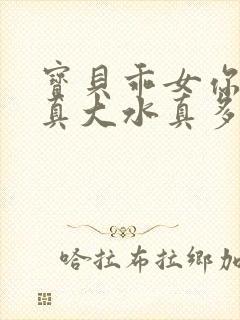 寶貝乖女你
真大水真多
哈拉布拉鄉加